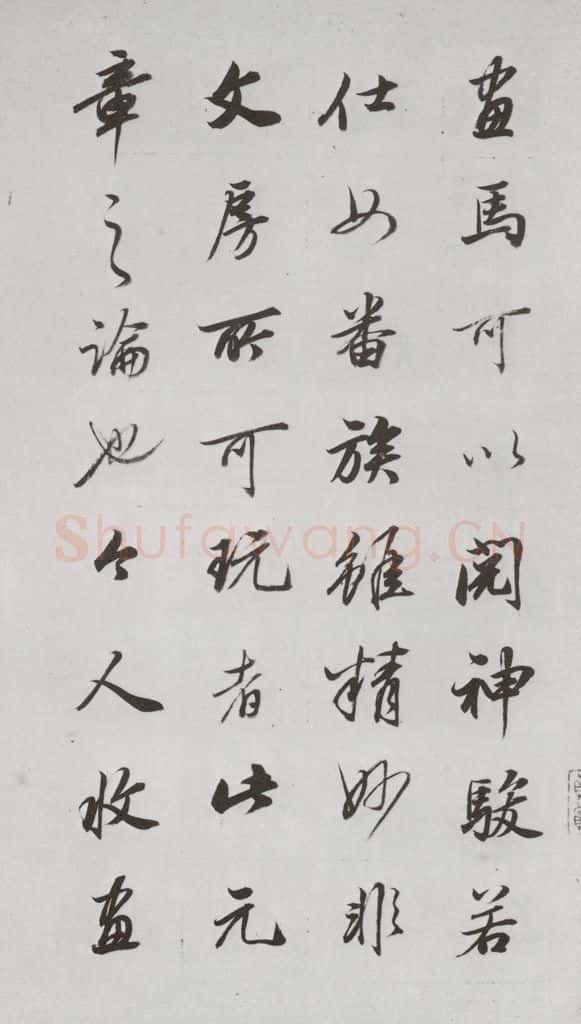 画馬可以閱神駿若
仕女番族雖精妙非
文房所可玩者此元
章之論也今人收画
Shufawang.CN